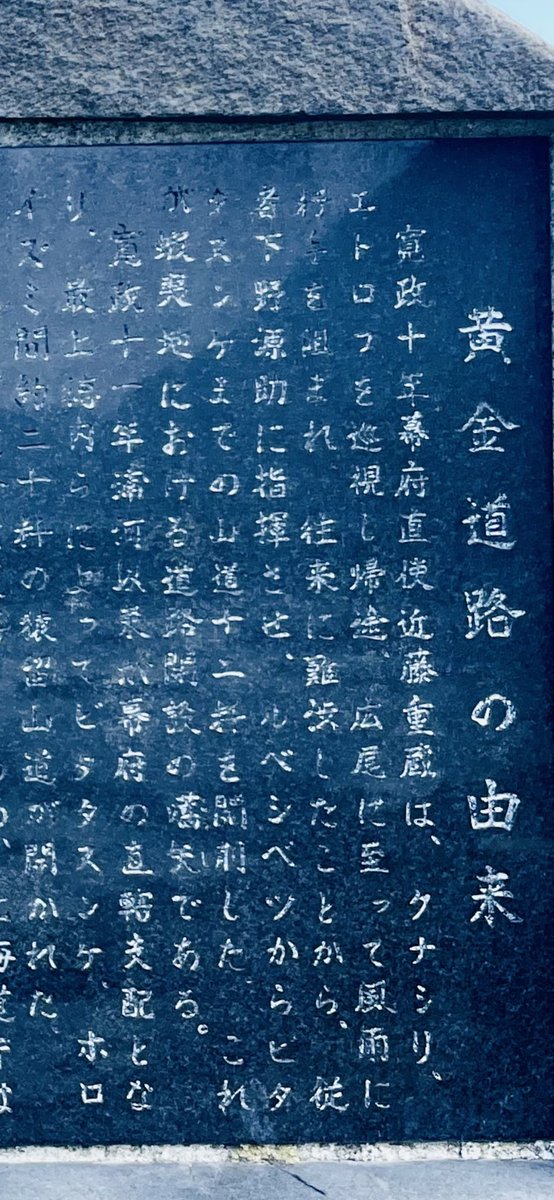 黄金道路の由来
寛政十年幕府直使近藤重蔵は、クナシリ、
エトロフを巡視し帰途、広尾に至って風雨に
行手を阻まれ、往来に難渋したことから、従
者下野源助に指揮させ、ルベシベツからビタ
タヌンケまでの山道十二粁を開削した。これ
が蝦夷地における道路開設の嚆矢である。
寛政十一年浦河以東が幕府の直轄支配とな
り、最上徳内らに上ってビタタヌンケ、ホロ
イズミ間約二十粁の猿留山道が開かれた